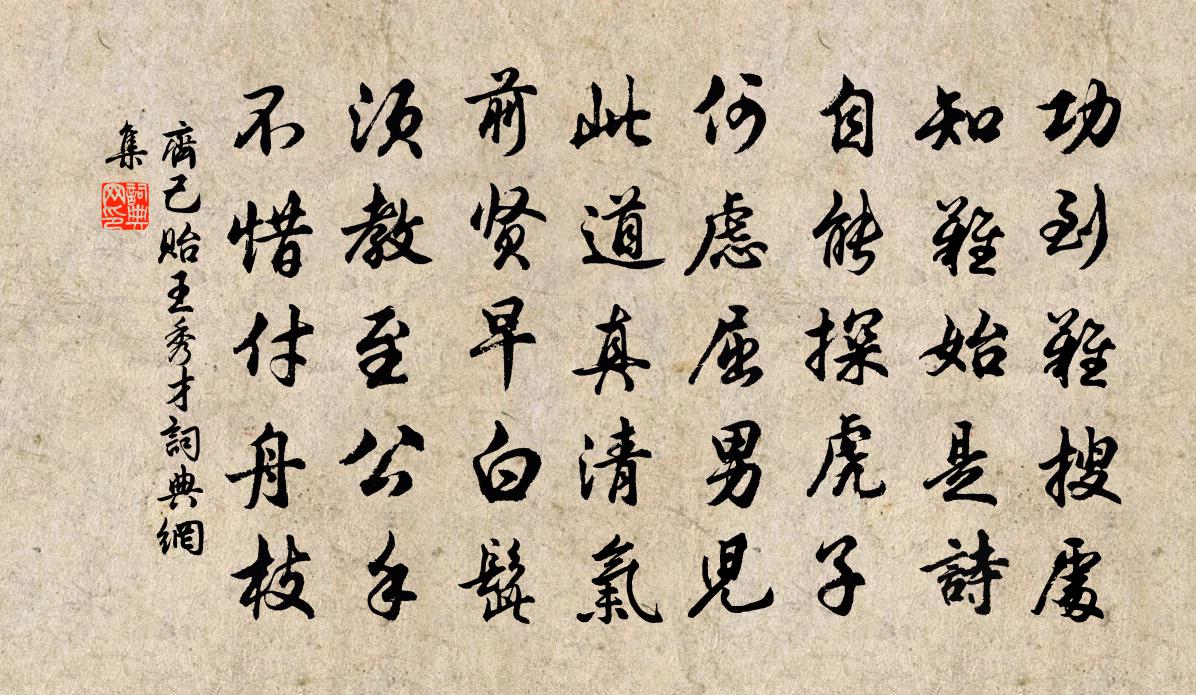 功到難搜處
知難始是詩
自能探虎子
何慮屈男兒
此道真清氣
前賢早白髭
須教至公手
不惜付舟枝
齊己貽王秀才詞典網
集
詞典网印